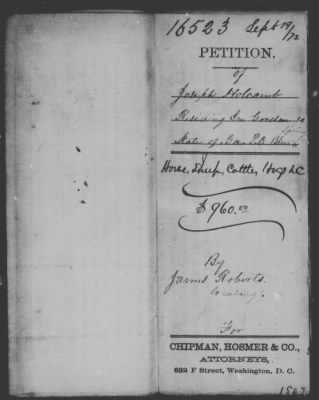 16523 Sept 19/72
PETITION.
of
Joseph Holcamb
Residing In Gordon Co
State of Ga P.O.
Horse, Sheep, Cattle, Hogs &C
$960.00
By
James Roberts.
For
CHIPMAN, HOSMER & CO.,
ATTORNEYS,
632 F Street, Washington, D. C.
1507